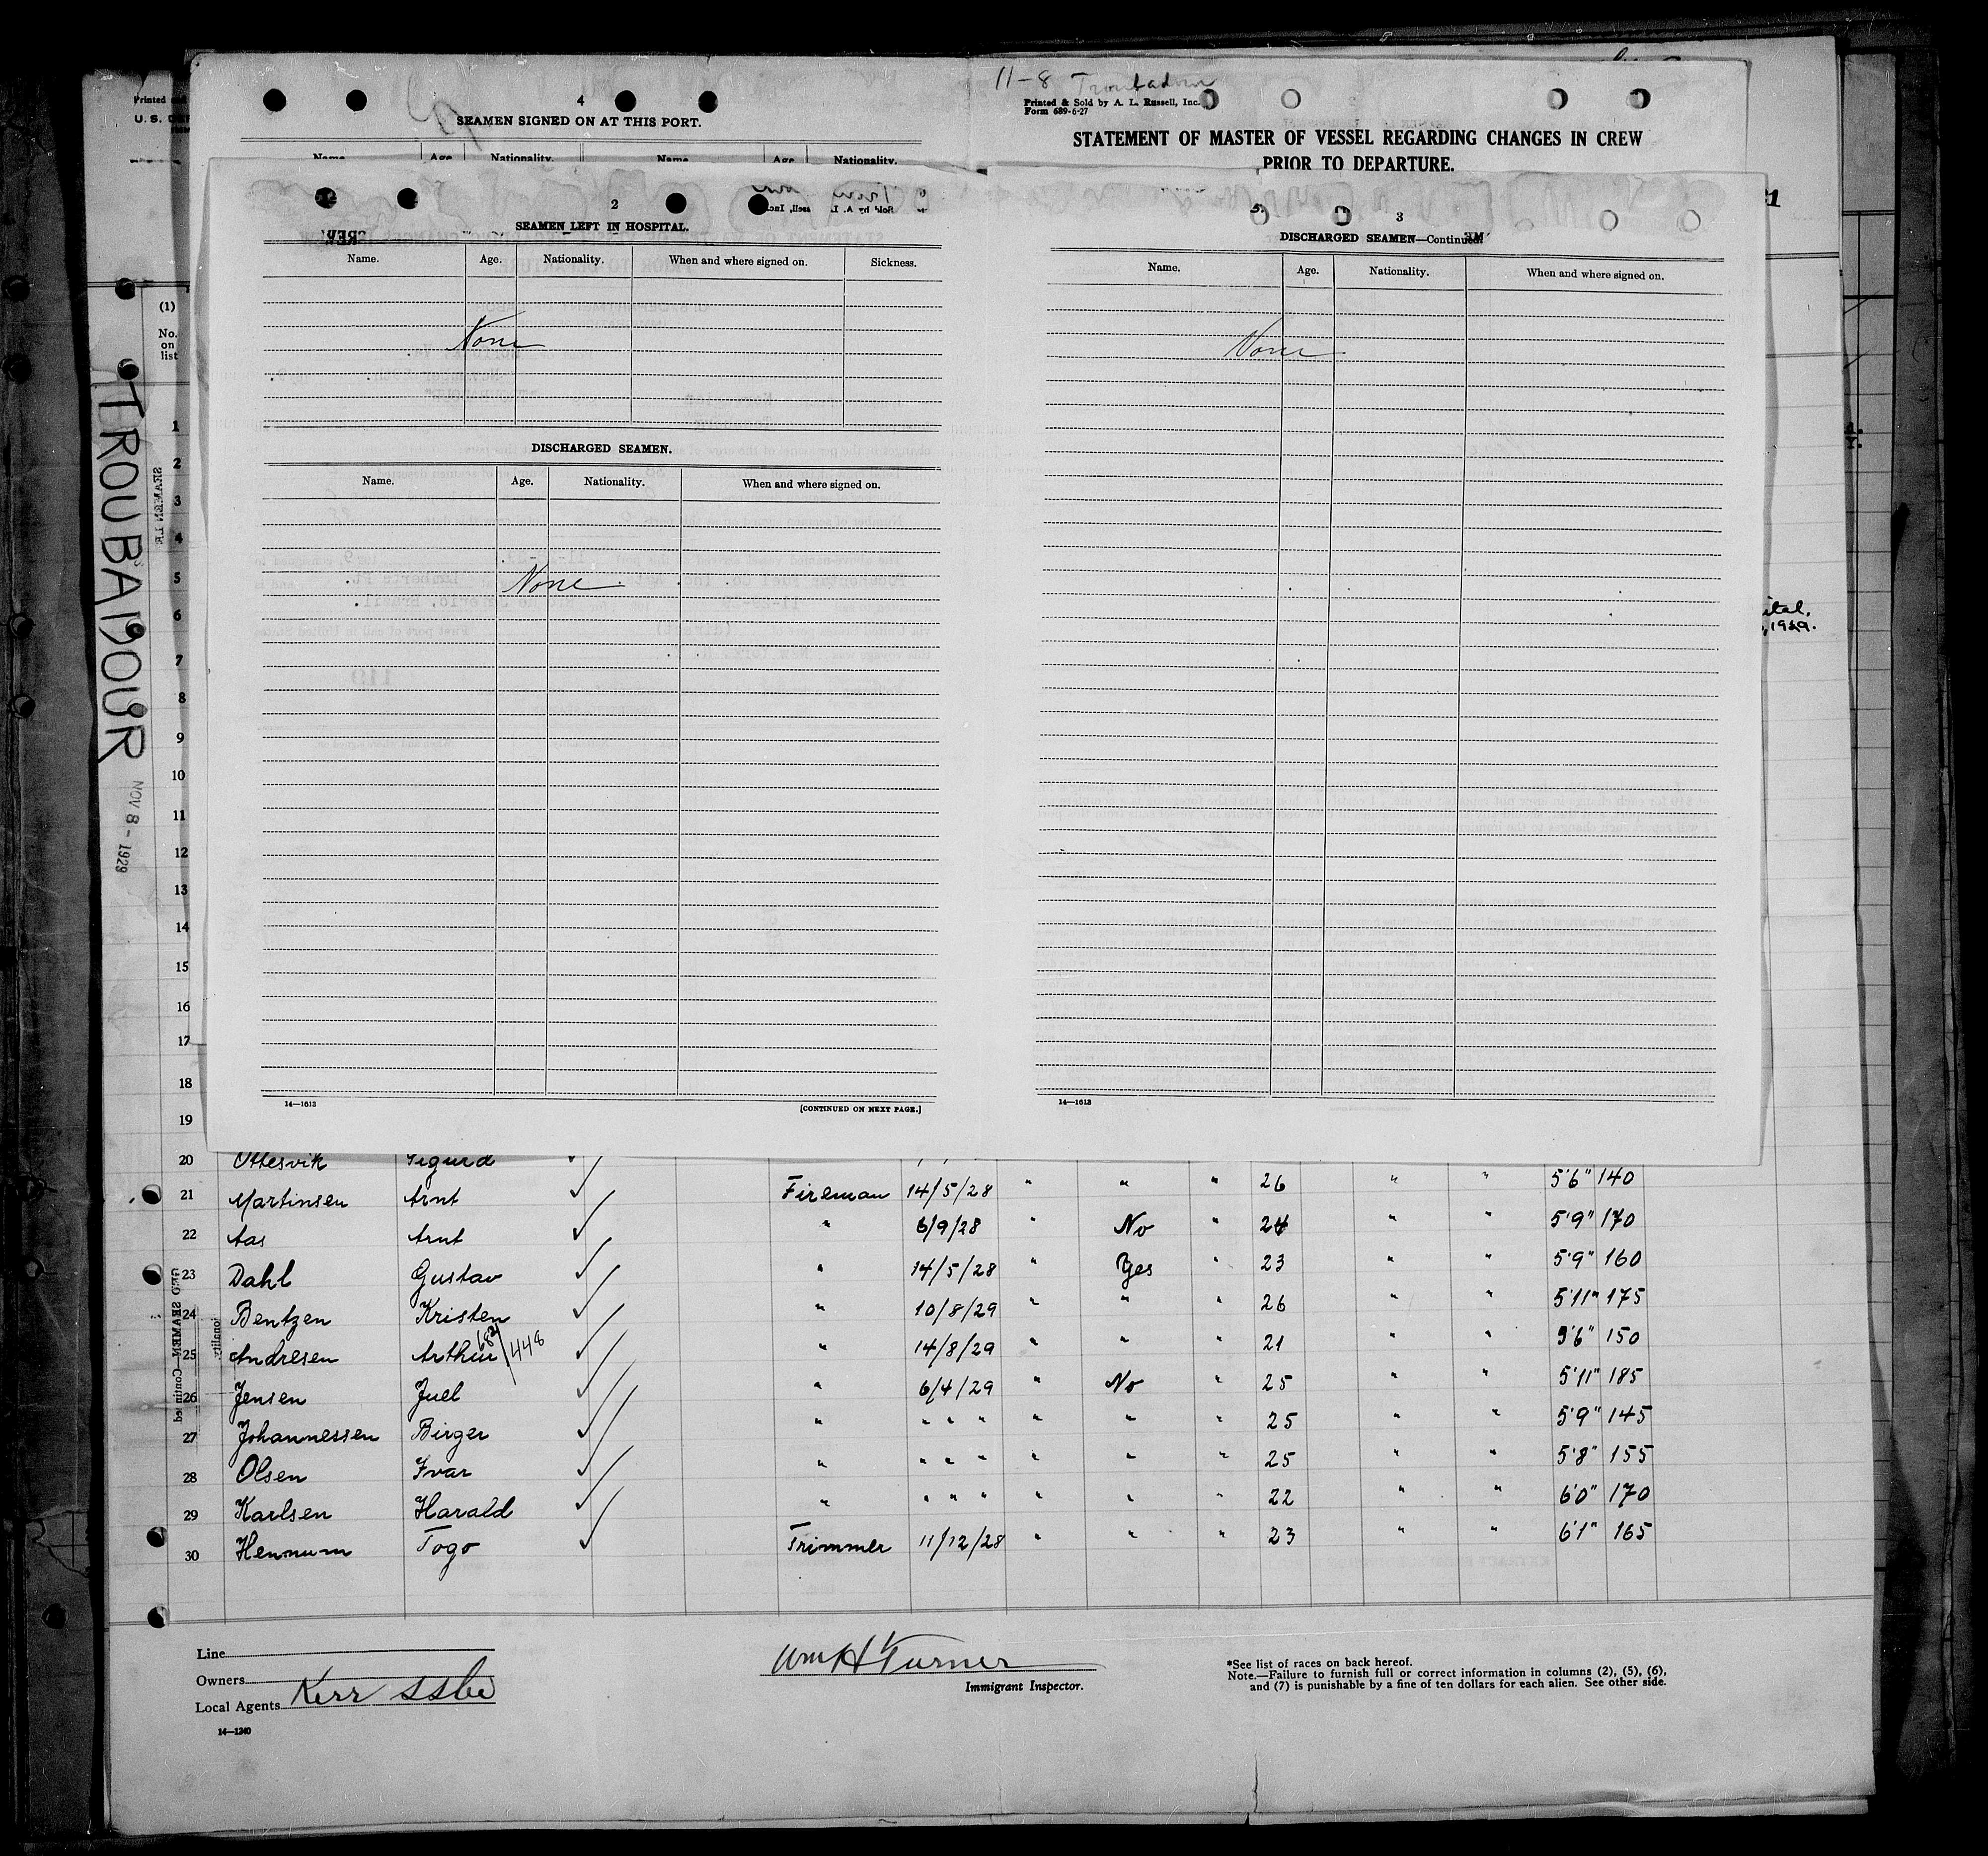 11-8 Troubadour
4
SEAMEN SIGNED ON AT THIS PORT.
Name. Age. Nationality. Name. Age. Nationality.
Printed & Sold by A. L. Russell, Inc.
Form 689-6-27
STATEMENT OF MASTER OF VESSEL REGARDING CHANGES IN CREW
PRIOR TO DEPARTURE.
Printed
U. S. DE
2
SEAMEN LEFT IN HOSPITAL.
Name. Age. Nationality. When and where signed on. Sickness.
None
DISCHARGED SEAMEN.
Name. Age. Nationality. When and where signed on.
None
14—1613
[CONTINUED ON NEXT PAGE.]
3
DISCHARGED SEAMEN—Continued.
Name. Age. Nationality. When and where signed on.
None
14—1613
ital.
, 1929.
TROUBADOUR
NOV 8 - 1929
(1)
No.
on
list
1
2
3
4
5
6
7
8
9
10
11
12
13
14
15
16
17
18
19
20 Ottesvik Sigurd
21 Martinsen Arnt Fireman 14/5/28 " " " 26 " " 5'6" 140
22 Aas Arnt " 6/9/28 " No " 24 " " 5'9" 170
23 Dahl Gustav " 14/5/28 " Yes " 23 " " 5'9" 160
24 Bentzen Kristen " 10/8/29 " " " 26 " " 5'11" 175
25 Andresen Arthur 682/448 " 14/8/29 " " " 21 " " 5'6" 150
26 Jensen Juel " 6/4/29 " No " 25 " " 5'11" 185
27 Johannessen Birger " " " " " " " 25 " " 5'9" 145
28 Olsen Ivar " " " " " " " 25 " " 5'8" 155
29 Karlsen Harald " " " " " " " 22 " " 6'0" 170
30 Hennum Togo Trimmer 11/12/28 " " " 23 " " 6'1" 165
Line
Owners
Local Agents Kerr SS Co
14—1240
Wm H Turner
Immigrant Inspector.
*See list of races on back hereof.
Note.—Failure to furnish full or correct information in columns (2), (5), (6),
and (7) is punishable by a fine of ten dollars for each alien. See other side.